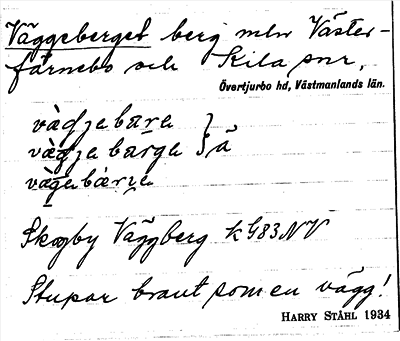 Väggeberget berg mln Väster-
fårnebo och Kila snr,
Övertjurbo hd, Västmanlands län.
vàg̀ɟebære
vægɟe bærga } ä
væ̀gebàrɟe
Skogby Väggberg k G83NV
Stupar brant som en vägg!
HARRY STÅHL 1934